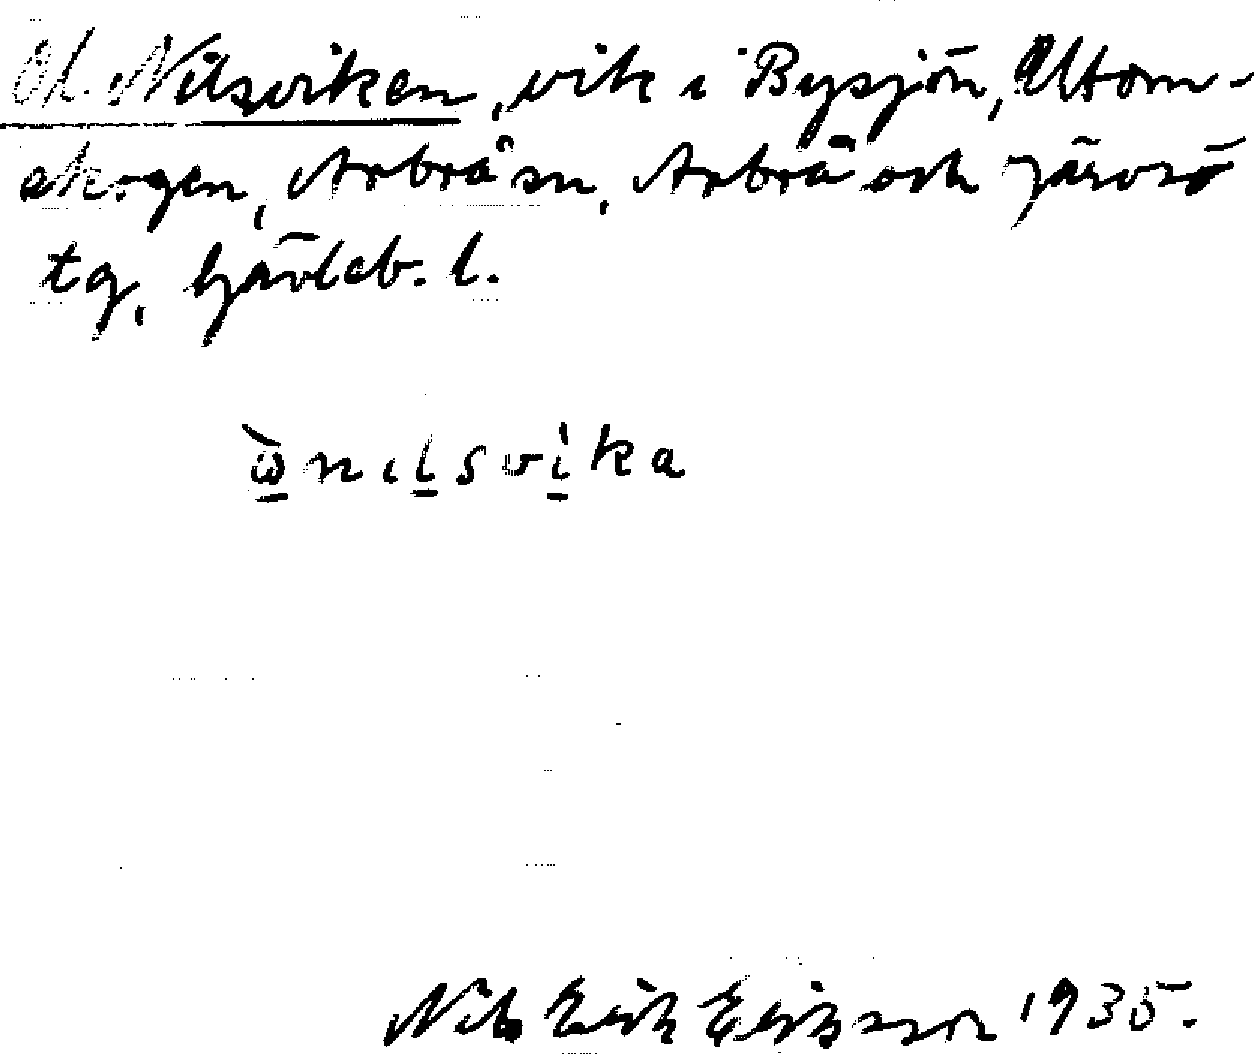 Ol. Nilsviken, vik i Bysjön, Utom-
skogen, Arbrå sn, Arbrå och Järvsö
tg, Gävleb. l.
ὼnilsvìka
Nils Erik Eriksson 1935.